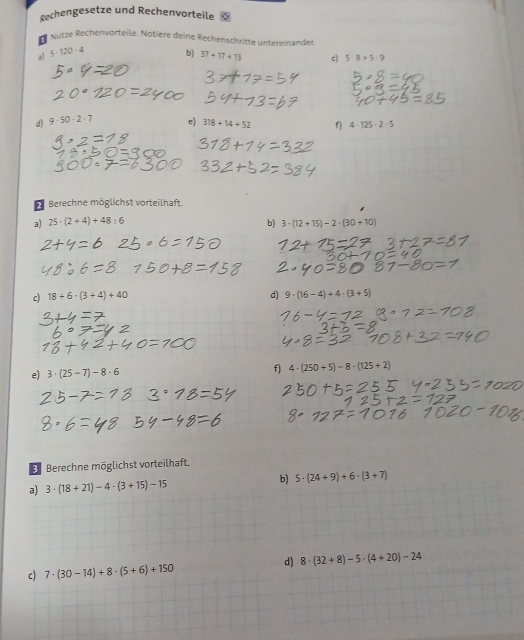 Rechengesetze und Rechenvorteile
1 Nutze Rechenvorteile. Notiere deine Rechenschritte untereinander.
a) 5 · 120 · 4
b) 37 + 17 + 13
c) 5 · 8 + 5 · 9
5 · 4 = 20
20 · 120 = 2400
37 + 17 = 54
54 + 13 = 67
5 · 8 = 40
5 · 9 = 45
40 + 45 = 85
d) 9 · 50 · 2 · 7
e) 318 + 14 + 52
f) 4 · 125 · 2 · 5
9 · 2 = 18
18 · 50 = 900
900 · 7 = 6300
318 + 14 = 332
332 + 52 = 384
2 Berechne möglichst vorteilhaft.
a) 25 · (2 + 4) + 48 : 6
b) 3 · (12 + 15) – 2 · (30 + 10)
2 + 4 = 6 25 · 6 = 150
48 : 6 = 8 150 + 8 = 158
12 + 15 = 27 3 + 27 = 81
30 + 10 = 40
2 · 40 = 80 81 – 80 = 1
c) 18 + 6 · (3 + 4) + 40
d) 9 · (16 – 4) + 4 · (3 + 5)
3 + 4 = 7
6 · 7 = 42
18 + 42 + 40 = 100
16 – 4 = 12 9 · 12 = 108
3 + 5 = 8
4 · 8 = 32 108 + 32 = 140
e) 3 · (25 – 7) – 8 · 6
f) 4 · (250 + 5) – 8 · (125 + 2)
25 – 7 = 18 3 · 18 = 54
8 · 6 = 48 54 – 48 = 6
250 + 5 = 255 4 · 255 = 1020
125 + 2 = 127
8 · 127 = 1016 1020 – 1016
3 Berechne möglichst vorteilhaft.
a) 3 · (18 + 21) – 4 · (3 + 15) – 15
b) 5 · (24 + 9) + 6 · (3 + 7)
c) 7 · (30 – 14) + 8 · (5 + 6) + 150
d) 8 · (32 + 8) – 5 · (4 + 20) – 24